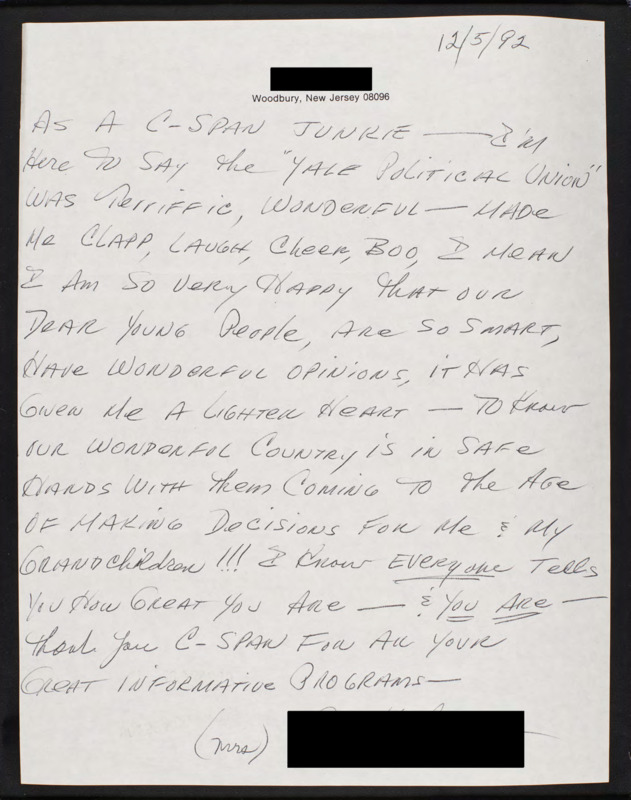 12/5/92
Woodbury, New Jersey 08096
AS A C-SPAN JUNKIE — I'm
Here TO SAY the "YALE POLITICAL UNION"
WAS Terriffic, WONDERFUL — MADE
Me CLAPP, LAUGH, Cheer, BOO, I MEAN
I Am SO Very HAPPY that our
DEAR YOUNG People, ARE SO SMART,
HAVE WONDERFUL OPINIONS, iT HAS
Given Me A LIGHTER HEART — TO Know
OUR WONDERFUL COUNTRY iS iN SAFe
HANDS WITH them COMING TO the AGe
OF MAKING DECISIONS FOR Me & MY
GRANDchildren !!! I Know EVERYone Tells
YOU HOW GREAT YOU ARE — & YOU ARE —
thank you C-SPAN FOR ALL YOUR
GREAT INFORMATIVE PROGRAMS —
(mrs)